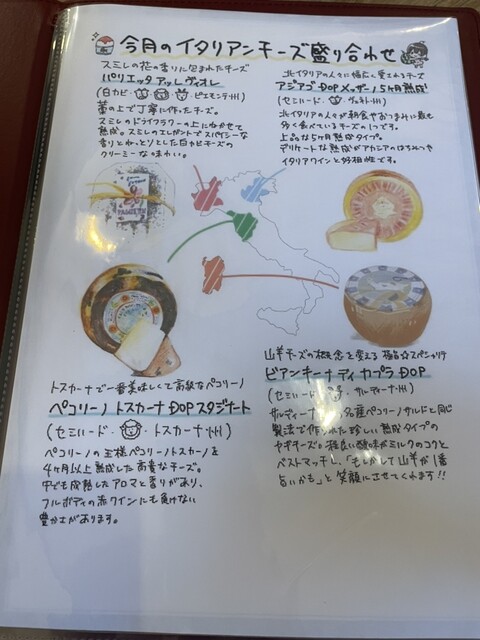 今月のイタリアンチーズ盛り合わせ
スミレの花の香りに包まれたチーズ
パリエッタ アッレ ヴィオレ
(白カビ・ ・ピエモンテ州)
藁の上で丁寧に作ったチーズ。
スミレのドライフラワーの上にねかせて
熟成。スミレのエレガントでスパイシーな
香りとねっとりとした白カビチーズの
クリーミーな味わい。
北イタリアの人々に幅広く愛されるチーズ
アジアゴ DOP メッザーノ 5ヶ月熟成
(セミハード・ ・ヴェネト州)
北イタリアの人々が朝食やおつまみに最も
多く食べているチーズの1つです。
上品な5ヶ月熟成タイプ。
デリケートな熟成がアカシアのはちみつや
イタリアワインと好相性です。
トスカーナで一番美味しくて高級なペコリーノ
ペコリーノ トスカーナ DOP スタジナート
(セミハード・ ・トスカーナ州)
ペコリーノの王様ペコリーノトスカーノを
4ヶ月以上熟成した高貴なチーズ。
中でも成熟したアロマと香りがあり、
フルボディの赤ワインにも負けない
豊かさがあります。
山羊チーズの概念を変える 極旨☆スペシャリテ
ビアンキーナ ディ カプラ DOP
(セミハード・ ・サルディーニャ州)
サルディーニャ 名産ペコリーノサルドと同じ
製法で作られた珍しい熟成タイプの
ヤギチーズ。程良い酸味がミルクのコクと
ベストマッチし、「もしかして山羊が1番
旨いかも」と笑顔にさせてくれます!!